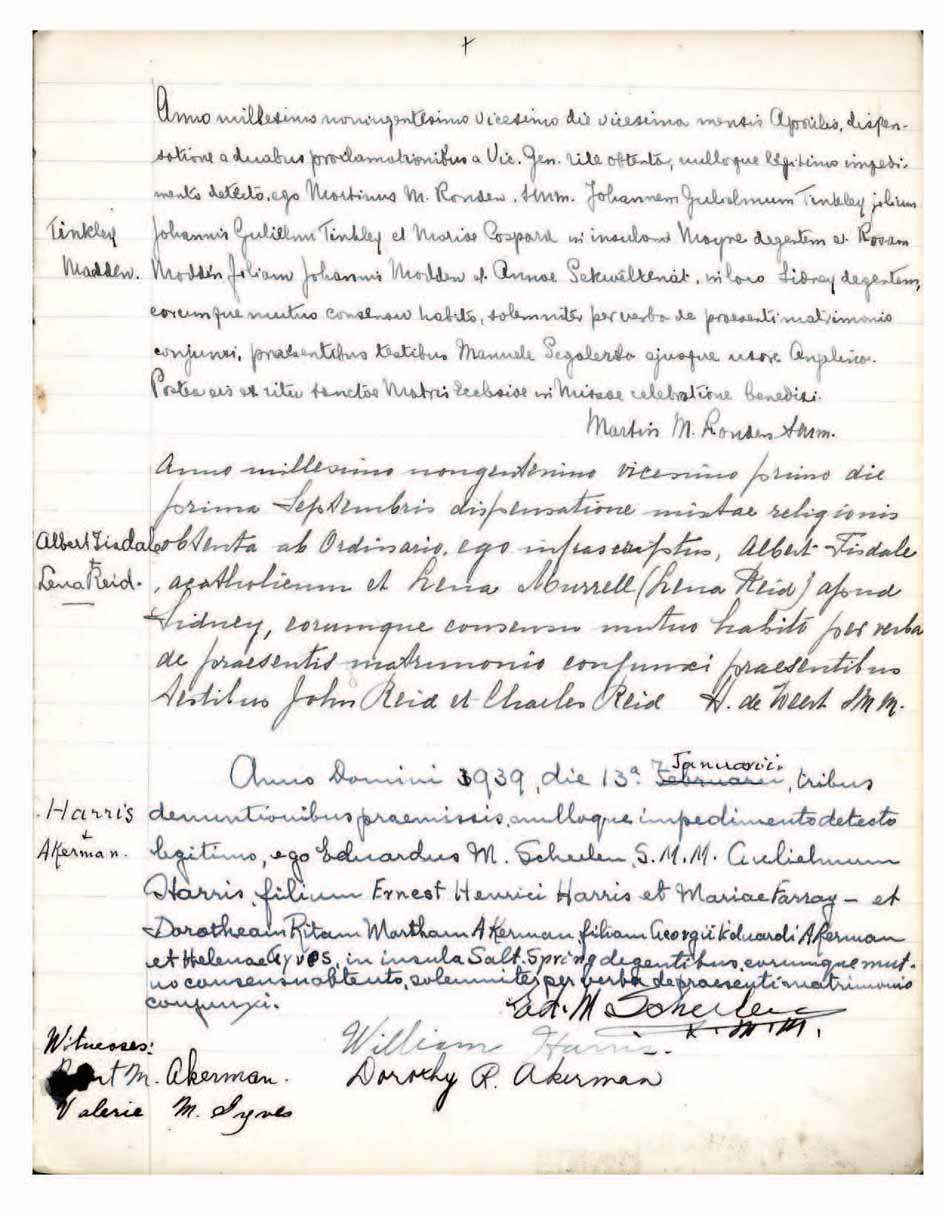 +
Anno millesimo noningentesimo vicesimo die vicesima mensis Aprilis, dispen-
satione a duabus proclamationibus a Vic. Gen. rite obtenta, nulloque legitimo impedi-
mento detecto, ego Martinus M. Ronden. smm. Johannem Gulielmum Tinkley filium
Tinkley
Johannis Gulielmi Tinkley et Mariae Gaspard in insula Mayne degentem et Rosam
Madden.
Madden filiam Johannis Madden et Annae Sekweltenat, in loco Sidney degentem,
eorumque mutuo consensu habito, solemniter per verba de praesenti matrimonio
conjunxi, praesentibus testibus Manuele Segalerba ejusque uxore Angelica.
Postea eis ex ritu sanctae Matris Ecclesiae in Missae celebratione benedixi.
Martin M. Ronden smm.
Anno millesimo nongentesimo vicesimo primo die
prima Septembris dispensatione mixtae religionis
Albert Tisdale
obtenta ab Ordinario, ego infrascriptus, Albert Tisdale
+
Lena Reid.
, acatholicum et Lena Murrell (Lena Reid) apud
Sidney, eorumque consensu mutuo habito per verba
de praesentis matrimonio conjunxi praesentibus
testibus John Reid et Charles Reid H. de Weert SMM.
Januarii
Anno Domini 1939, die 13ª Februarii, tribus
Harris
denuntionibus praemissis, nulloque impedimento detecto
+
Akerman.
legitimo, ego Eduardus M. Scheelen, S.M.M. Gulielmum
Harris, filium Ernest Henrici Harris et Mariae Farray - et
Dorotheam Ritam Martham Akerman, filiam Georgii Eduardi Akerman
et Helenae Gyves, in insula Salt Spring degentibus, eorumque mut-
uo consensu obtento, solemniter per verba de praesenti matrimonio
conjunxi.
Ed. M. Scheelen
s.m.m.
Witnesses:
William Harris.
M. Akerman.
Dorothy R. Akerman
Valerie M. Gyves